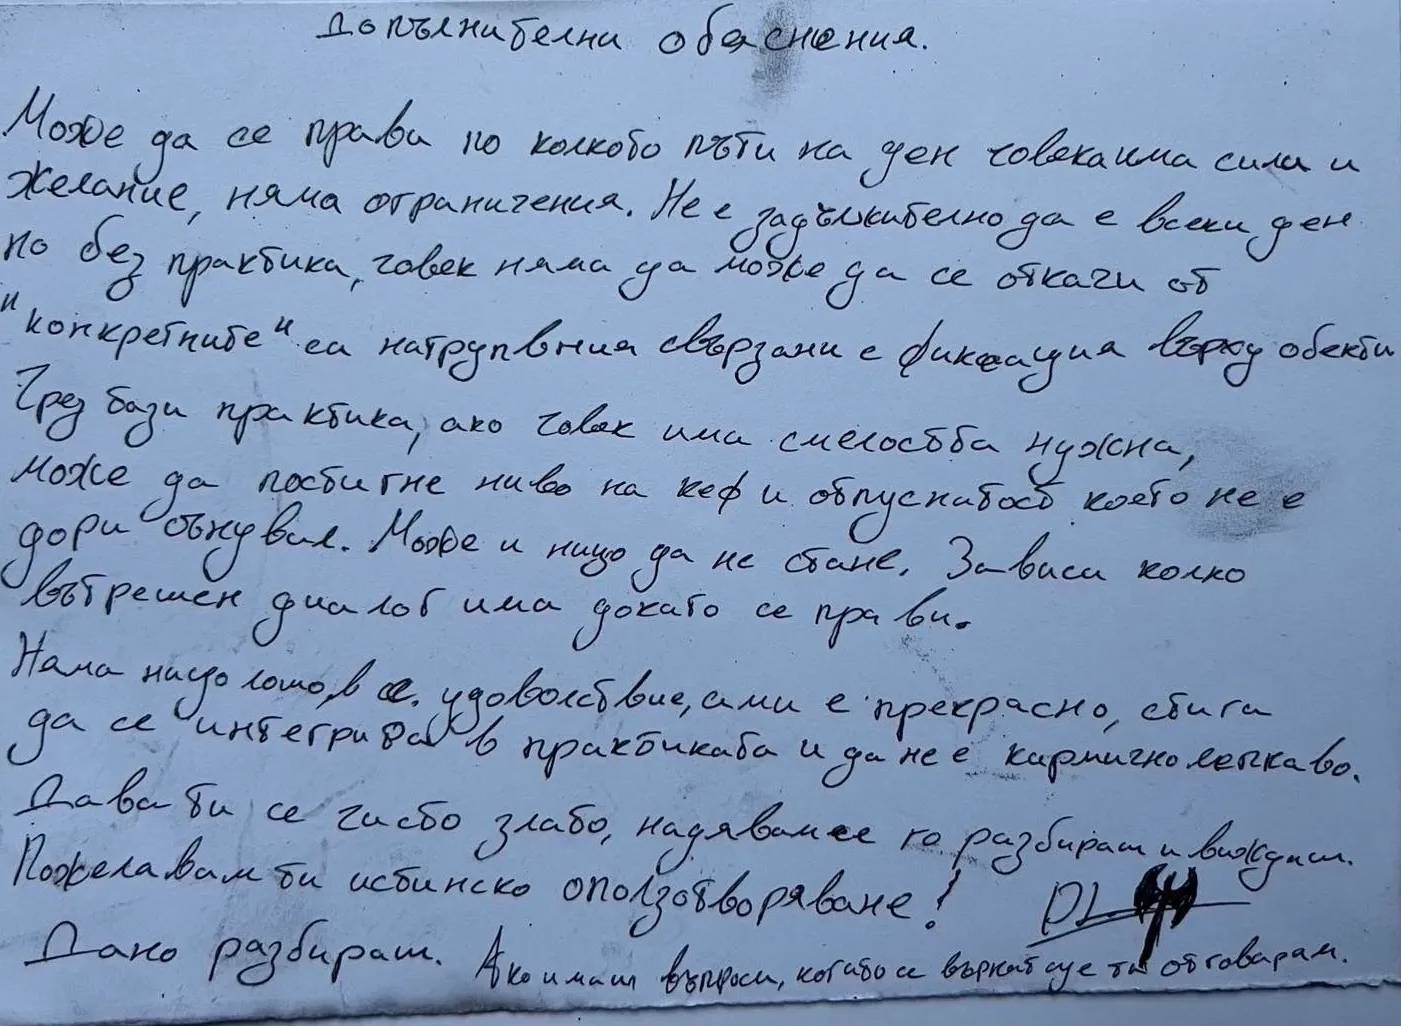 Допълнителни обяснения.
Може да се прави по колкото пъти на ден човека има сила и
желание, няма ограничения. Не е задължително да е всеки ден
но без практика, човек няма да може да се откачи от
"конкретните" си натрупвния свързани с фиксация върху обекти
Чрез тази практика, ако човек има смелостта нужна,
може да постигне ниво на кеф и отпуснатост което не е
дори сънувал. Може и нищо да не стане. Зависи колко
вътрешен диалог има докато се прави.
Няма нищо лошо, в се. удоволствие, ами е прекрасно, стига
да се интегрира в практиката и да не е кармично лепкаво.
Дава ти се чисто злато, надявам се го разбираш и виждаш.
Пожелавам ти истинско оползотворяване!
DL
Дано разбираш. Ако имаш въпроси, когато се върнат ще ти отговарям.